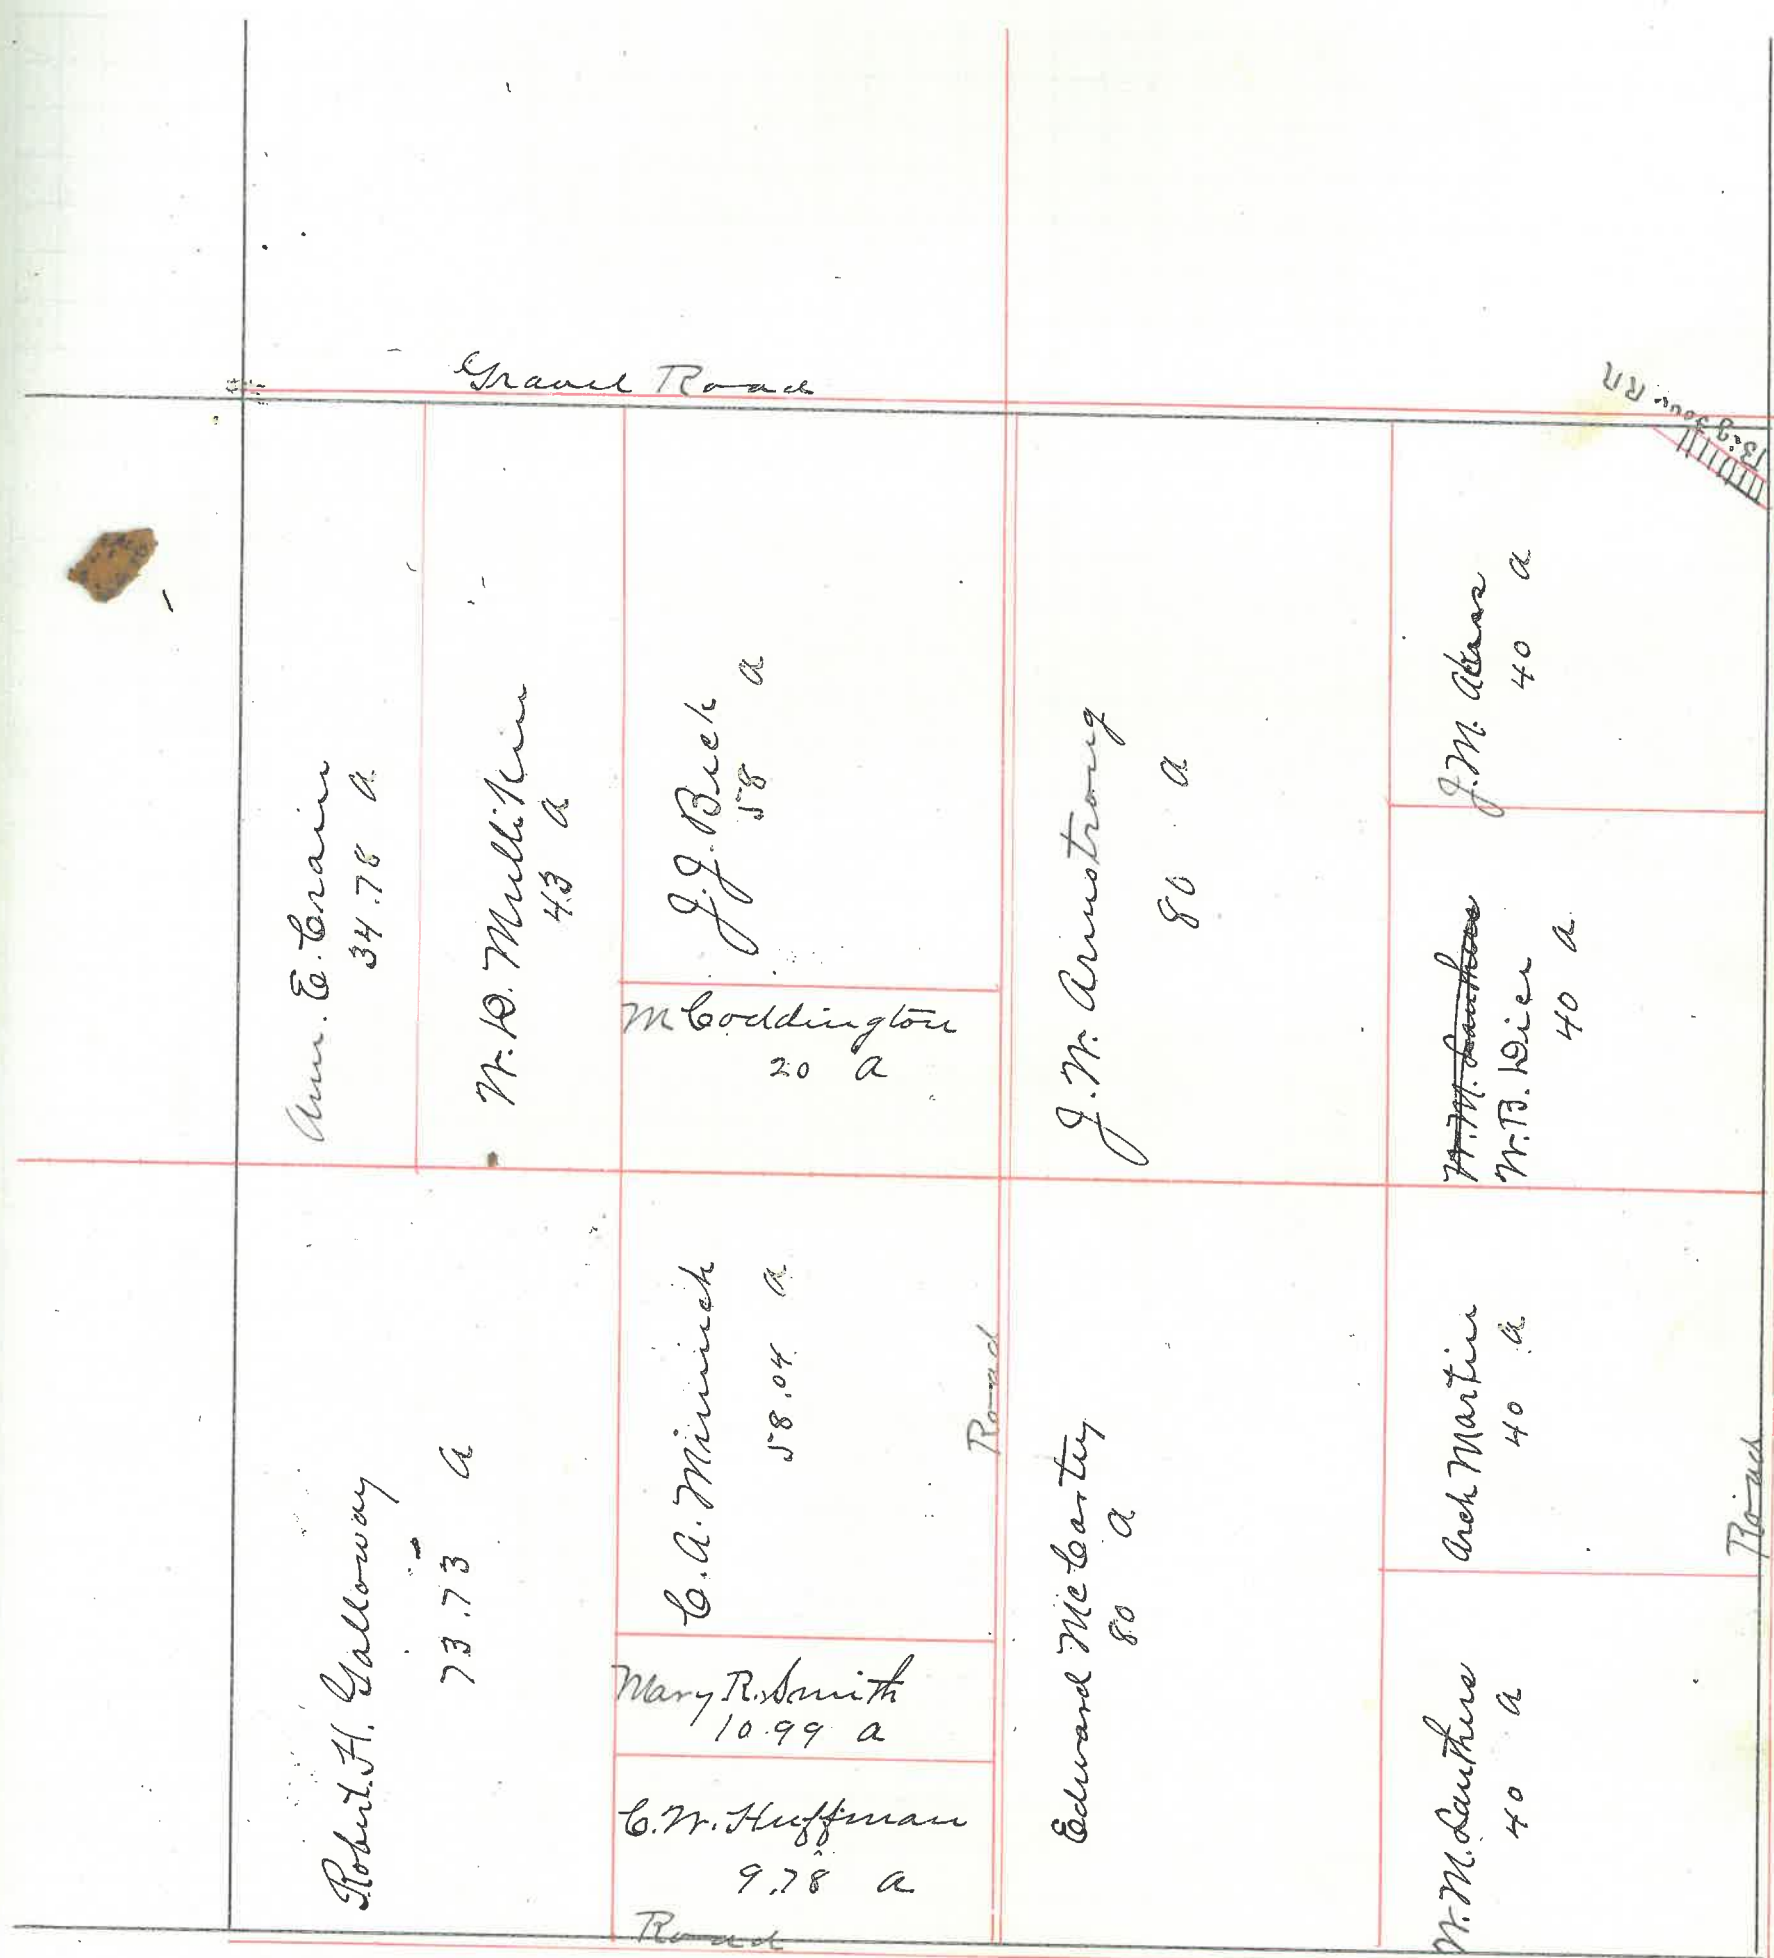 Gravel Road
Big Four RR
Ann. E. Crain
34.78 a
W. D. Mullikin
43 a
J. J. Beck
58 a
M Coddington
20 a
J. W. Armstrong
80 a
J. M. Akers
40 a
W. M. Lauthers
W. B. Dier
40 a
Robert. H. Galloway
73.73 a
C. A. Minnich
58.04 a
Mary R. Smith
10.99 a
C. W. Huffman
9.78 a
Road
Road
Edward McCarty
80 a
Arch Martin
40 a
W. M. Lauthers
40 a
Road